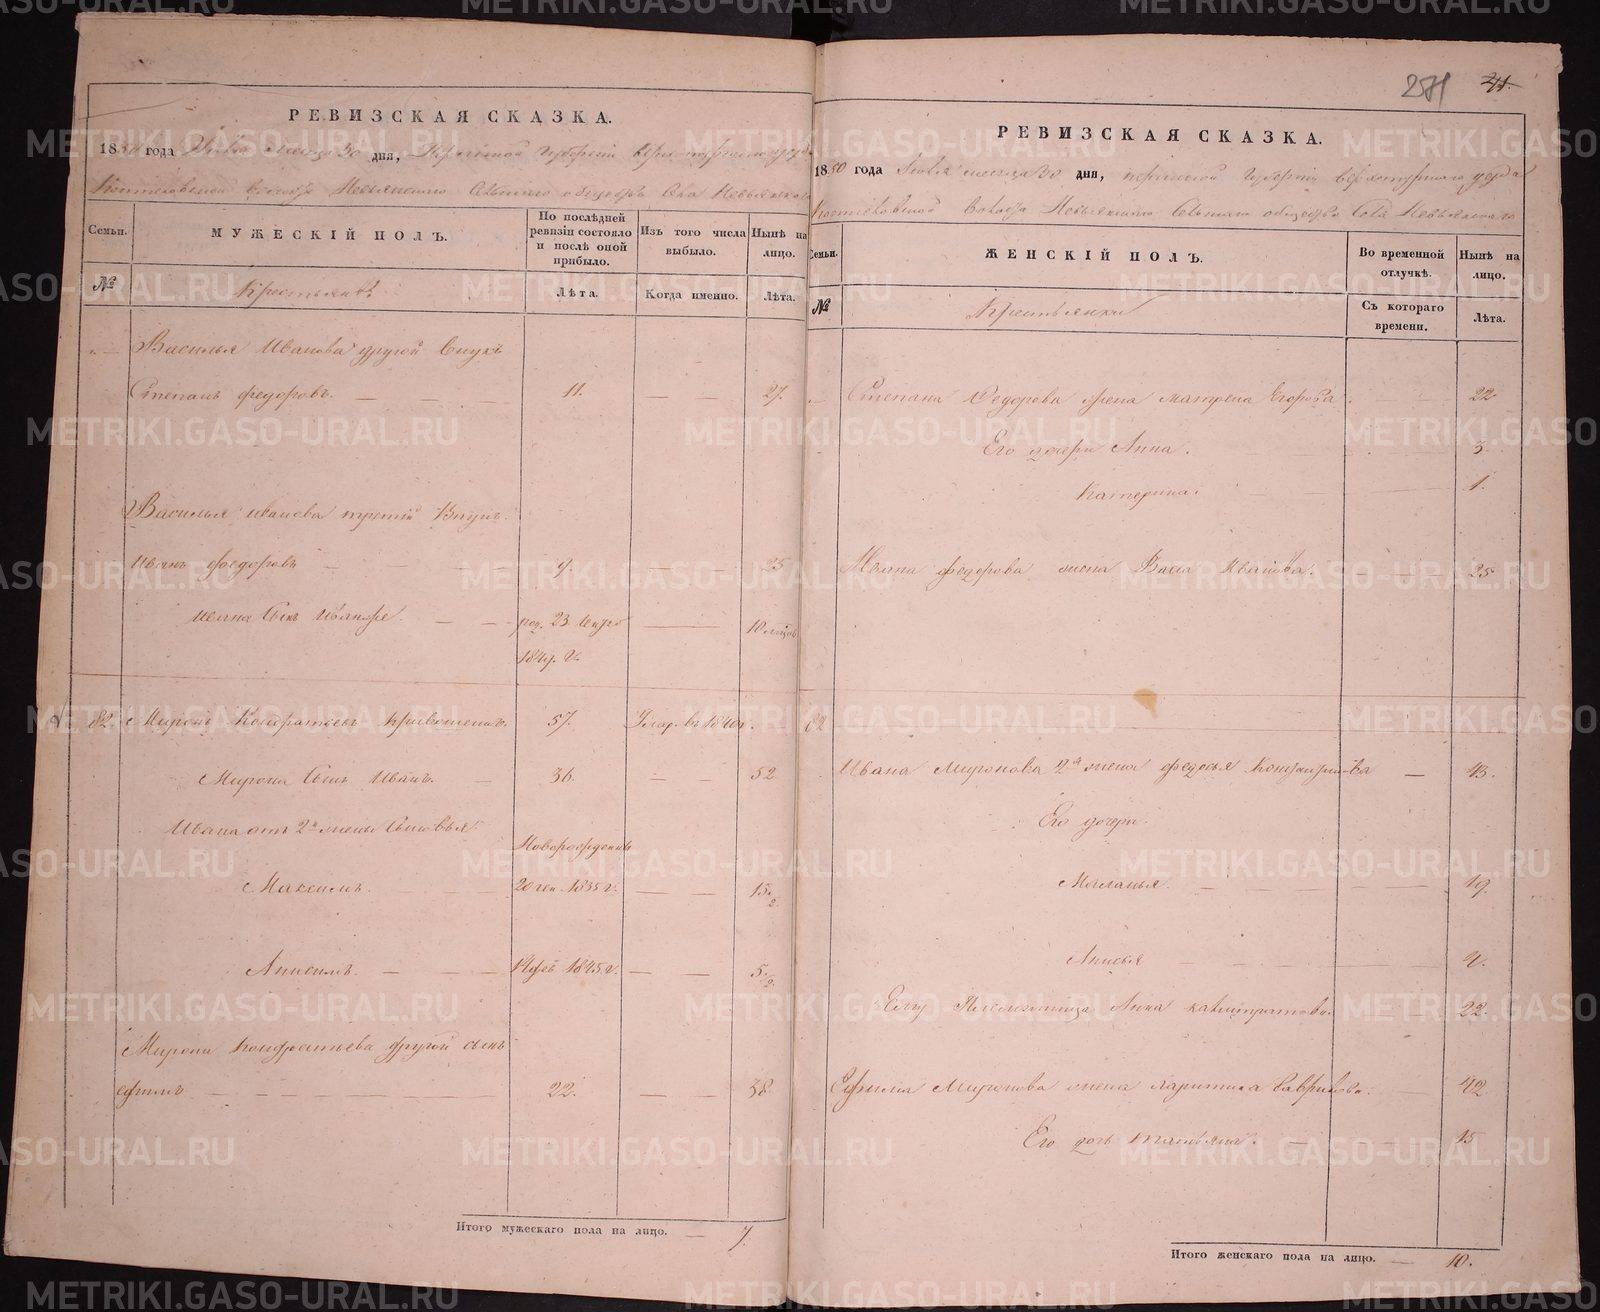 271 41.
РЕВИЗСКАЯ СКАЗКА.
1850 года Июня месяца 30 дня, Пермской Губернiи Верхотурскаго уезда
волости Невьянскаго Сельскаго общества Села Невьянскаго
Семьи.
МУЖЕСКIЙ ПОЛЪ.
По послѣдней ревизiи состояло и послѣ оной прибыло.
Изъ того числа выбыло.
Нынѣ на лицо.
№
Крестьянъ
Лѣта.
Когда именно.
Лѣта.
Василья Иванова другой Внукъ
Степанъ Федоровъ. 11. 27.
Василья Иванова третiй Внукъ.
Иванъ Федоровъ 9. 25
Ивана Сынъ Иванже. род. 23 10 мѣсяц
1849. г.
82. Миронъ Кондратьевъ Кривошеинъ. 57. Умер. въ 1840 г.
Мирона Сынъ Иванъ. 36. 52
Ивана отъ 2й жены Сыновья
Новорожденъ
Максимъ. 20 ген. 1835 г. 15 1/2
Анисимъ. 14 фев 1845 г. 5 1/2
Мирона Кондратьева другой сынъ
Ефимъ 22. 38
Итого мужескаго пола на лицо. 7.
РЕВИЗСКАЯ СКАЗКА.
1850 года Июня месяца 30 дня, пермской Губернiи верхотурскаго уезда
волости Невьянскаго Сельскаго общества Села Невьянскаго
Семьи.
ЖЕНСКIЙ ПОЛЪ.
Во временной отлучкѣ.
Нынѣ на лицо.
№
Крестьянки
Съ котораго времени.
Лѣта.
Степана Федорова жена Матрена Егорова. 22
Его дочери Анна. 3
Катерина. 1.
Ивана Федорова жена Васса Иванова. 25
82
Ивана Миронова 2я жена Федосья 43.
Его дочери.
Маланья. 19.
Анисья 9.
Ему Племянница Анна 22.
Ефима Миронова жена Гаврилова. 42
Его дочь Татьяна. 15
Итого женскаго пола на лицо. 10.
METRIKI.GASO-URAL.RU